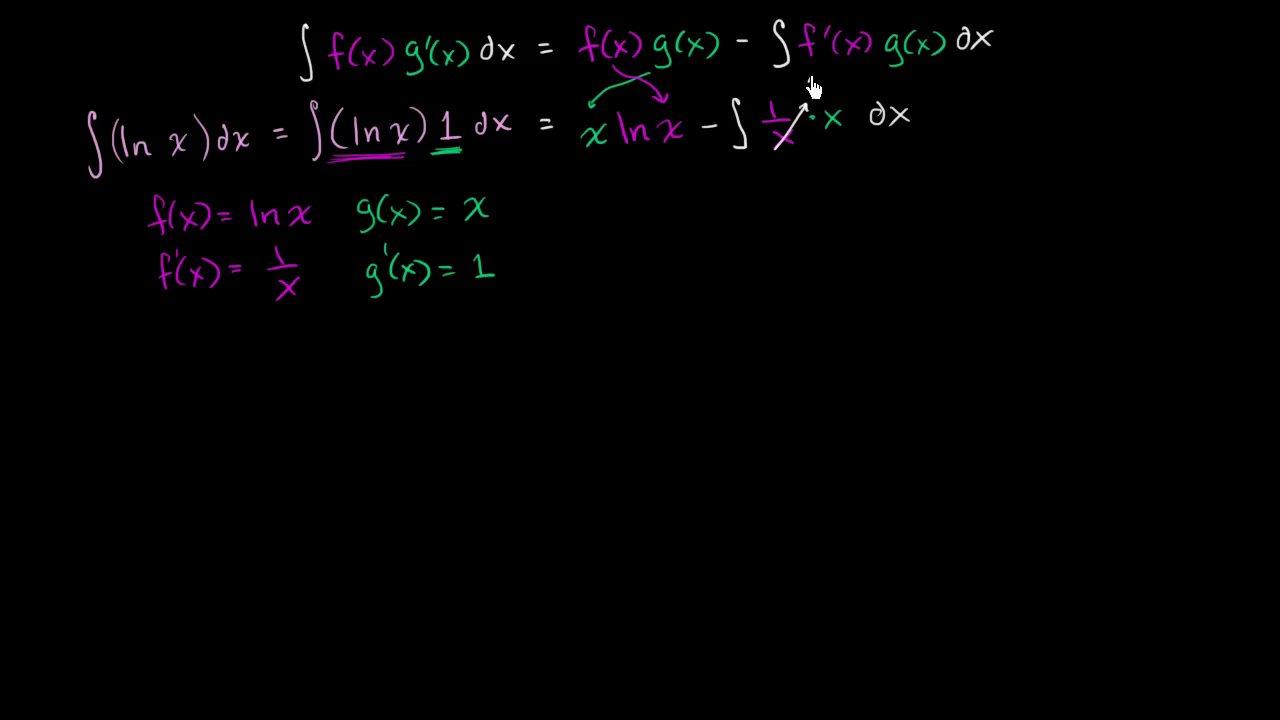 ∫ f(x) g'(x) dx = f(x) g(x) - ∫ f'(x) g(x) dx
∫(ln x) dx = ∫(ln x) 1 dx = x ln x - ∫ 1/x · x dx
f(x) = ln x g(x) = x
f'(x) = 1/x g'(x) = 1